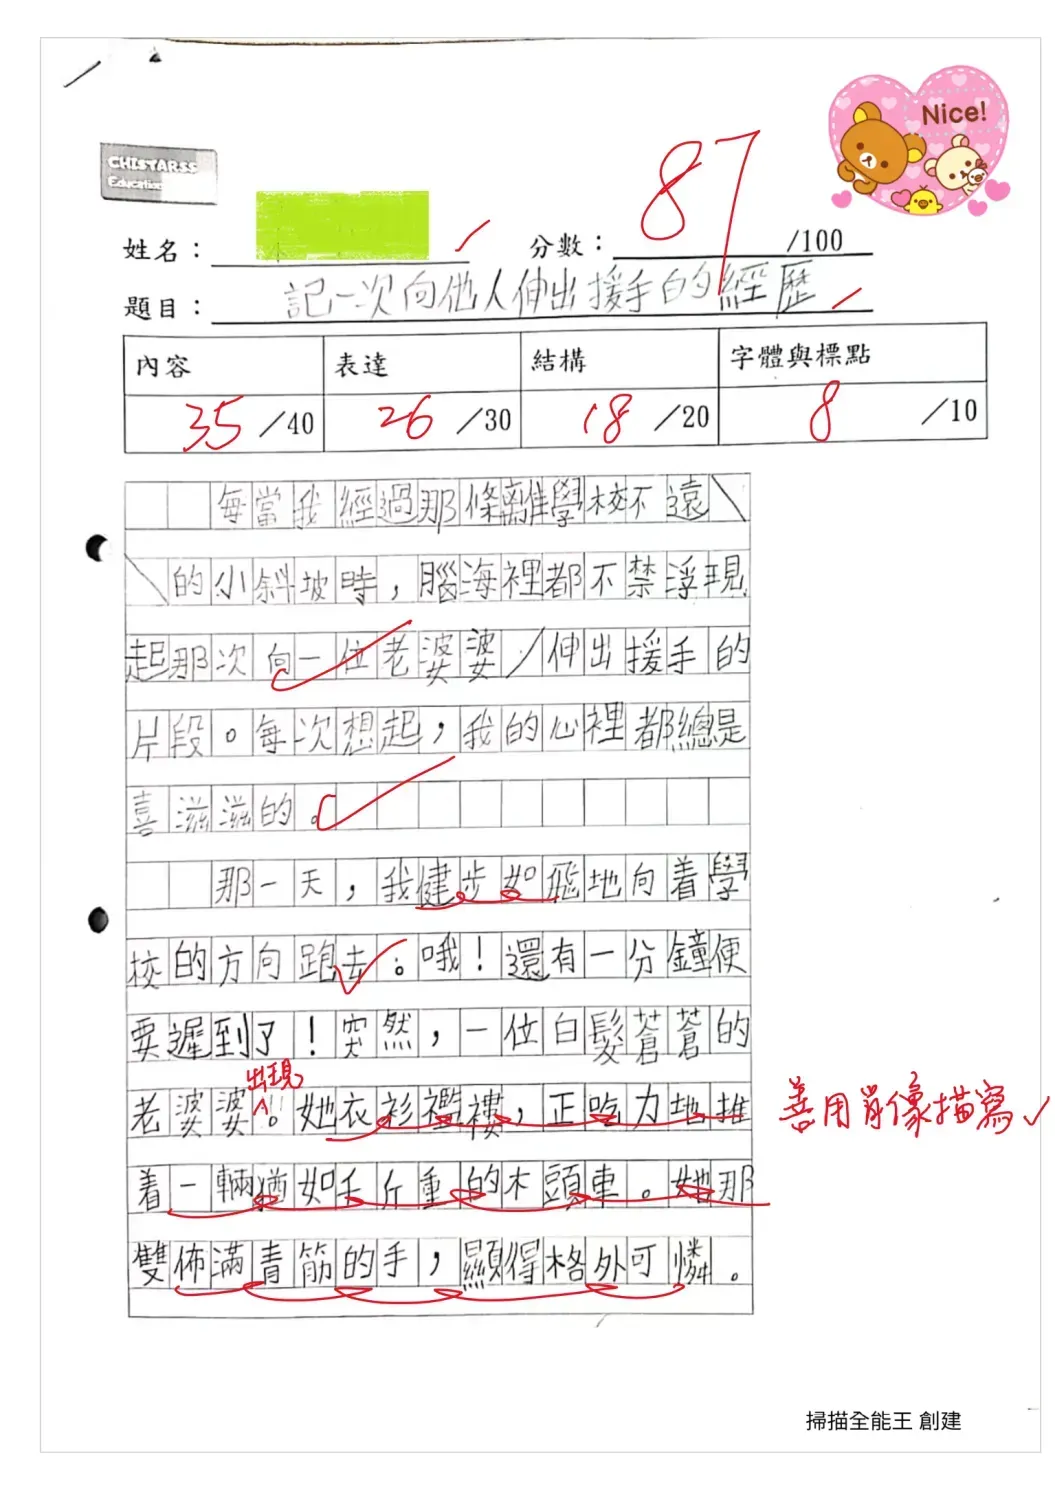 Nice!
CHISTARSS
Education
87
姓名：
分數： /100
題目： 記一次向他人伸出援手的經歷
內容 表達 結構 字體與標點
35 /40 26 /30 18 /20 8 /10
每當我經過那條離學校不遠
的小斜坡時，腦海裡都不禁浮現
起那次向一位老婆婆伸出援手的
片段。每次想起，我的心裡都總是
喜滋滋的。
那一天，我健步如飛地向着學
校的方向跑去。哦！還有一分鐘便
要遲到了！突然，一位白髮蒼蒼的
出現
老婆婆。她衣衫襤褸，正吃力地推
善用肖像描寫
着一輛猶如千斤重的木頭車。她那
雙佈滿青筋的手，顯得格外可憐。
掃描全能王 創建